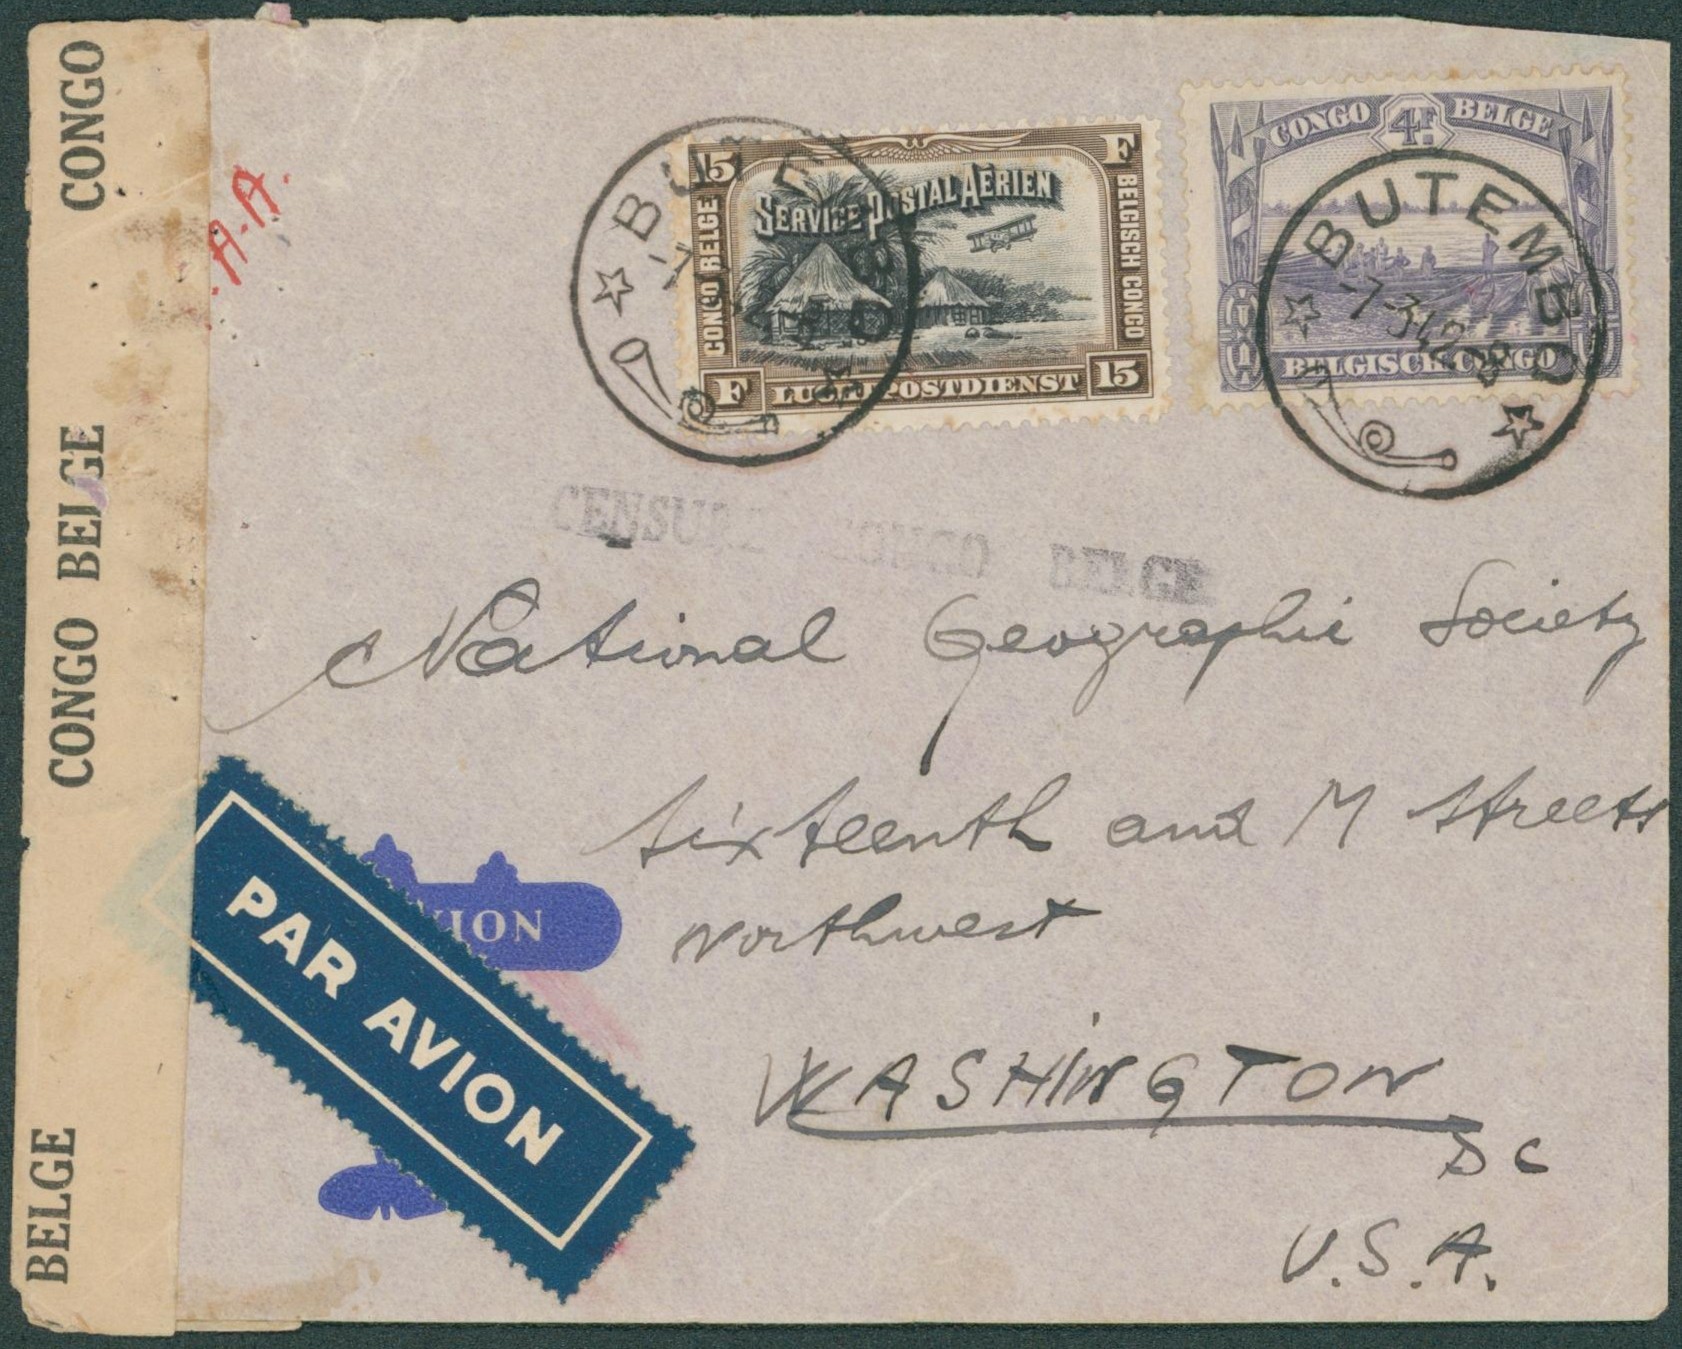 CONGO
CONGO BELGE
BELGE
A-A.
15 F
SERVICE POSTAL AÉRIEN
CONGO BELGE
BELGISCH CONGO
F LUCHTPOSTDIENST 15
BUTEMBO
CONGO 4F. BELGE
BELGISCH CONGO
BUTEMBO
-7-3-42
CENSURE CONGO BELGE
National Geographic Society
Sixteenth and M Streets
Northwest
WASHINGTON
DC
U.S.A.
PAR AVION
VION